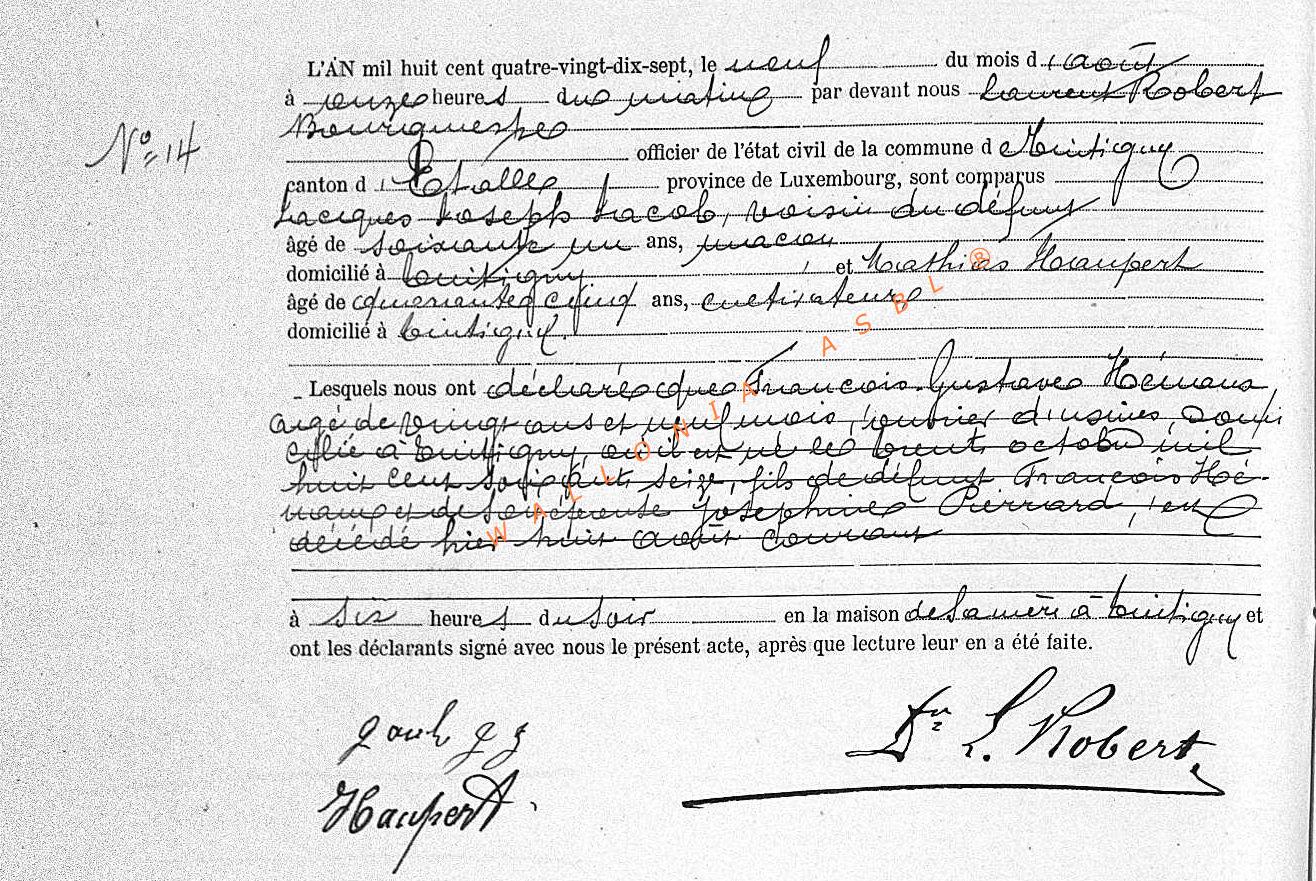 L'AN mil huit cent quatre-vingt-dix-sept, le neuf du mois d'août
à onze heures du matin par devant nous Laurent Robert
Bourgmestre
N° 14
officier de l'état civil de la commune de Tintigny
canton d'Etalle province de Luxembourg, sont comparus
Jacques Joseph Jacob, voisin du défunt
âgé de soixante un ans, maçon
domicilié à Tintigny et Mathias Haupert
âgé de cinq ans, cultivateur
domicilié à Tintigny.
Lesquels nous ont déclaré que François Gustave Hémans,
âgé de vingt ans et neuf mois, ouvrier d'usines, domi
cilié à Tintigny, où il est né le trente octobre mil
huit cent soixante seize, fils de défunt François Hé-
mans et de Joséphine Pierrard, est
décédé hier huit août courant
à six heures du soir en la maison de sa mère à Tintigny et
ont les déclarants signé avec nous le présent acte, après que lecture leur en a été faite.
Dr L. Robert
Haupert
WALLONIA ASBL ®